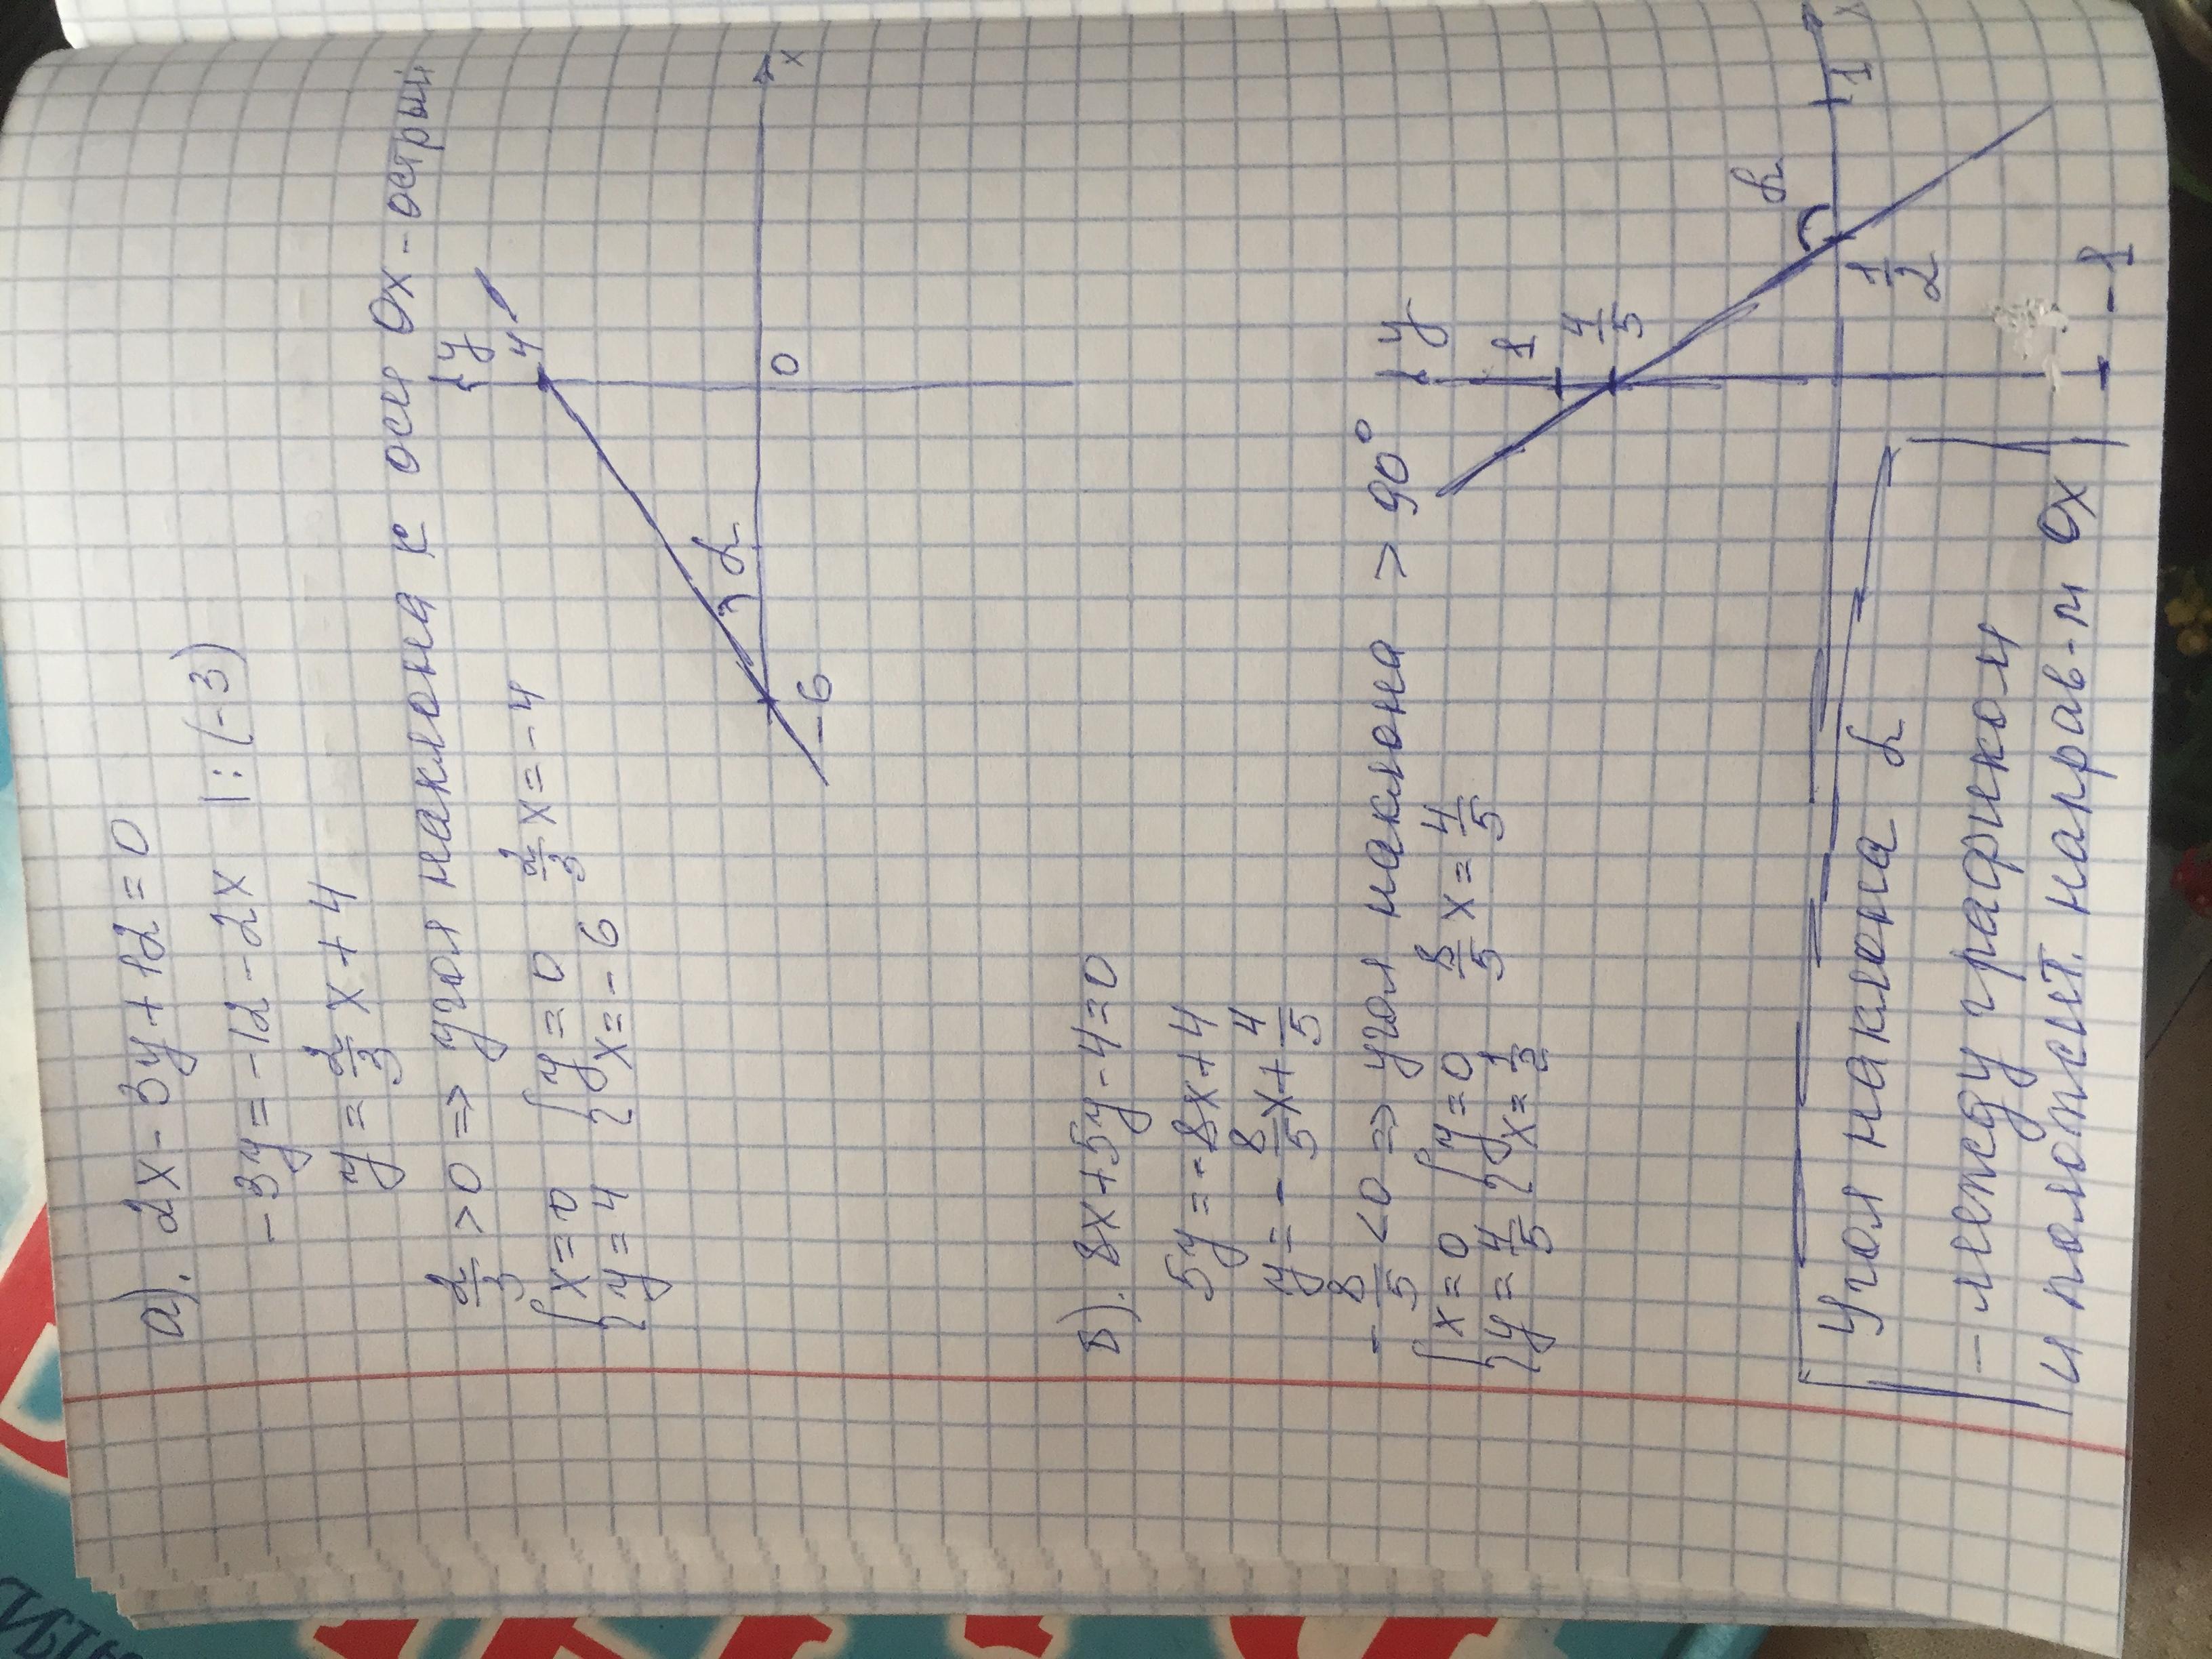 а). 2x - 3y + 12 = 0
-3y = -12 - 2x |:(-3)
y = 2/3 x + 4
2/3 > 0 => угол наклона к оси Ox - острый
{x = 0 {y = 0 2/3 x = -4
{y = 4 {x = -6
y
4
α
-6
0
x
в). 8x + 5y - 4 = 0
5y = -8x + 4
y = - 8/5 x + 4/5
- 8/5 < 0 => угол наклона > 90°
{x = 0 {y = 0 8/5 x = 4/5
{y = 4/5 {x = 1/2
y
1
4/5
α
1/2
1
x
-1
Угол наклона α
- между графиком
и положит. направ-м Ox